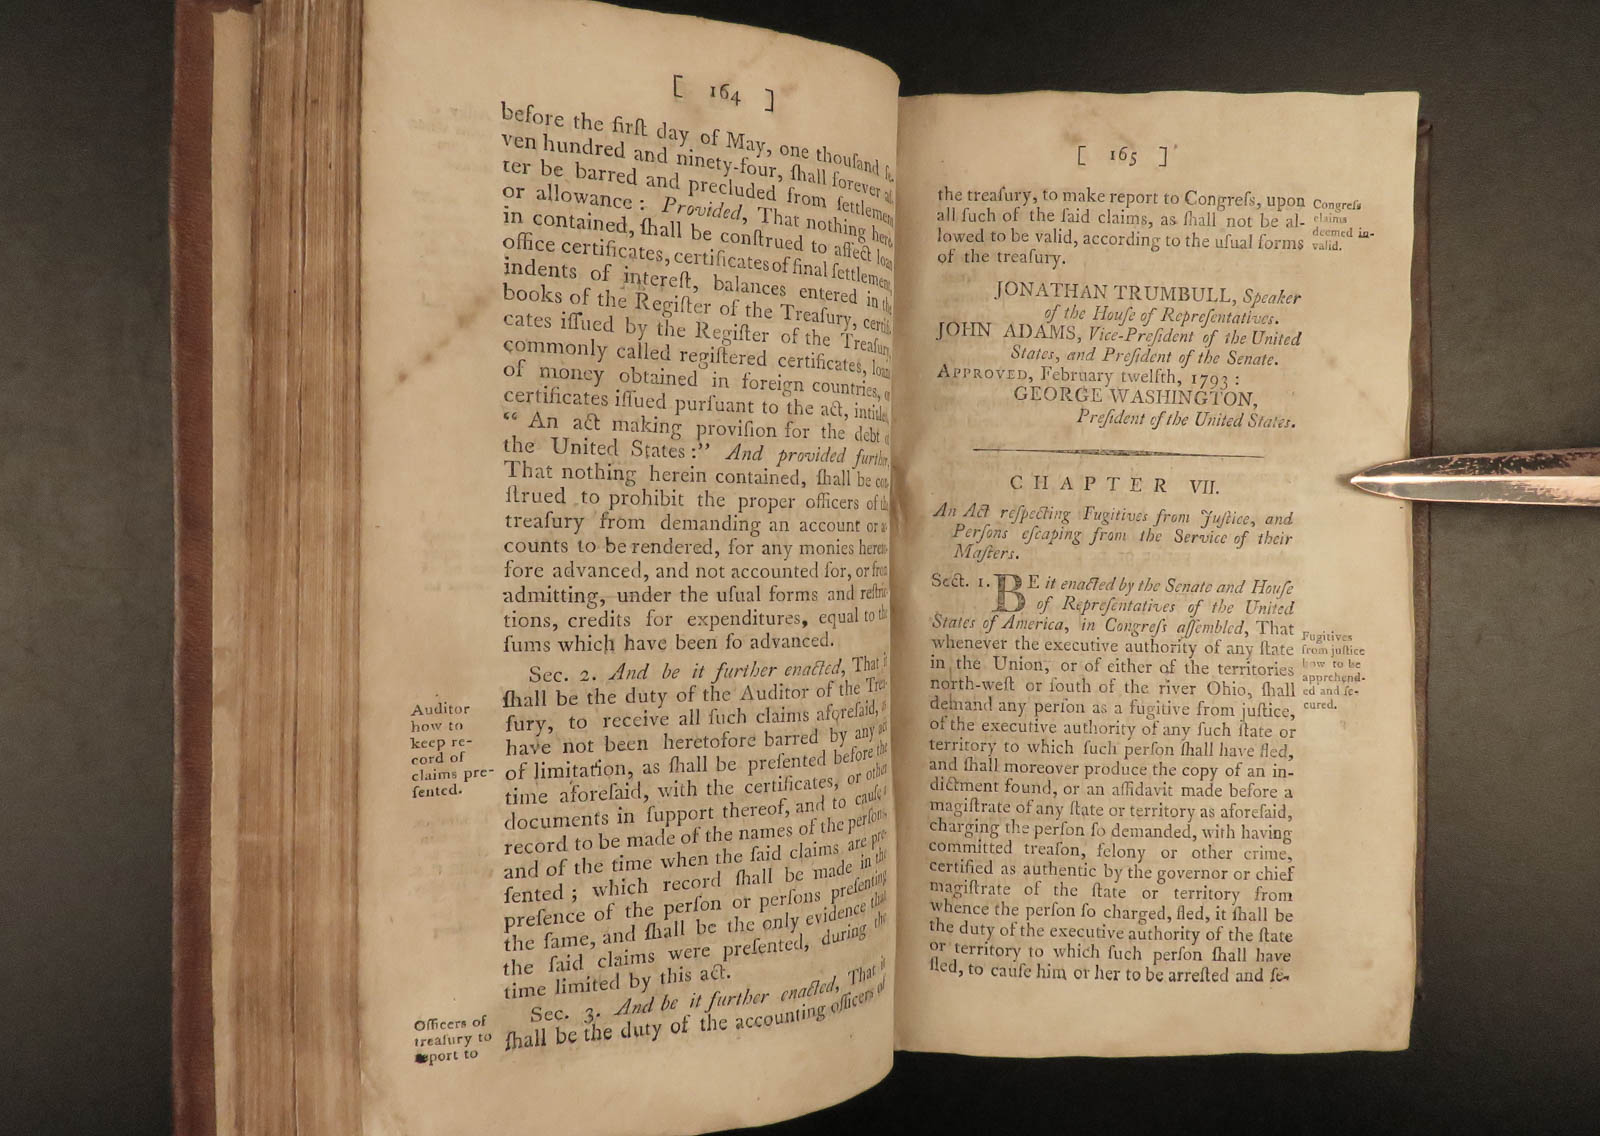 [ 164 ]
before the firſt day of May, one thouſand ſe-
ven hundred and ninety-four, ſhall forever af-
ter be barred and precluded from ſettlement
or allowance : Provided, That nothing here-
in contained, ſhall be conſtrued to affect loan
office certificates, certificates of final ſettlement,
indents of intereſt, balances entered in the
books of the Regiſter of the Treaſury, certifi-
cates iſſued by the Regiſter of the Treaſury,
commonly called regiſtered certificates, loans
of money obtained in foreign countries, or
certificates iſſued purſuant to the act, intitled,
“ An act making proviſion for the debt of
the United States :” And provided further,
That nothing herein contained, ſhall be con-
ſtrued to prohibit the proper officers of the
treaſury from demanding an account or ac-
counts to be rendered, for any monies hereto-
fore advanced, and not accounted for, or from
admitting, under the uſual forms and reſtric-
tions, credits for expenditures, equal to the
ſums which have been ſo advanced.
Sec. 2. And be it further enacted, That it
ſhall be the duty of the Auditor of the Trea-
ſury, to receive all ſuch claims aforeſaid, as
have not been heretofore barred by any act
of limitation, as ſhall be preſented before the
time aforeſaid, with the certificates, or other
documents in ſupport thereof, and to cauſe a
record to be made of the names of the perſons,
and of the time when the ſaid claims are pre-
ſented ; which record ſhall be made in the
preſence of the perſon or perſons preſenting
the ſame, and ſhall be the only evidence that
the ſaid claims were preſented, during the
time limited by this act.
Sec. 3. And be it further enacted, That it
ſhall be the duty of the accounting officers of
Auditor
how to
keep re-
cord of
claims pre-
ſented.
Officers of
treaſury to
report to
[ 165 ]
the treaſury, to make report to Congreſs, upon
all ſuch of the ſaid claims, as ſhall not be al-
lowed to be valid, according to the uſual forms
of the treaſury.
Congreſs
claims
deemed in-
valid.
JONATHAN TRUMBULL, Speaker
of the Houſe of Repreſentatives.
JOHN ADAMS, Vice-Preſident of the United
States, and Preſident of the Senate.
APPROVED, February twelfth, 1793 :
GEORGE WASHINGTON,
Preſident of the United States.
CHAPTER VII.
An Act reſpecting Fugitives from Juſtice, and
Perſons eſcaping from the Service of their
Maſters.
Sect. 1. BE it enacted by the Senate and Houſe
of Repreſentatives of the United
States of America, in Congreſs aſſembled, That
whenever the executive authority of any ſtate
in the Union, or of either of the territories
north-weſt or ſouth of the river Ohio, ſhall
demand any perſon as a fugitive from juſtice,
of the executive authority of any ſuch ſtate or
territory to which ſuch perſon ſhall have fled,
and ſhall moreover produce the copy of an in-
dictment found, or an affidavit made before a
magiſtrate of any ſtate or territory as aforeſaid,
charging the perſon ſo demanded, with having
committed treaſon, felony or other crime,
certified as authentic by the governor or chief
magiſtrate of the ſtate or territory from
whence the perſon ſo charged, fled, it ſhall be
the duty of the executive authority of the ſtate
or territory to which ſuch perſon ſhall have
fled, to cauſe him or her to be arreſted and ſe-
Fugitives
from juſtice
how to be
apprehend-
ed and ſe-
cured.